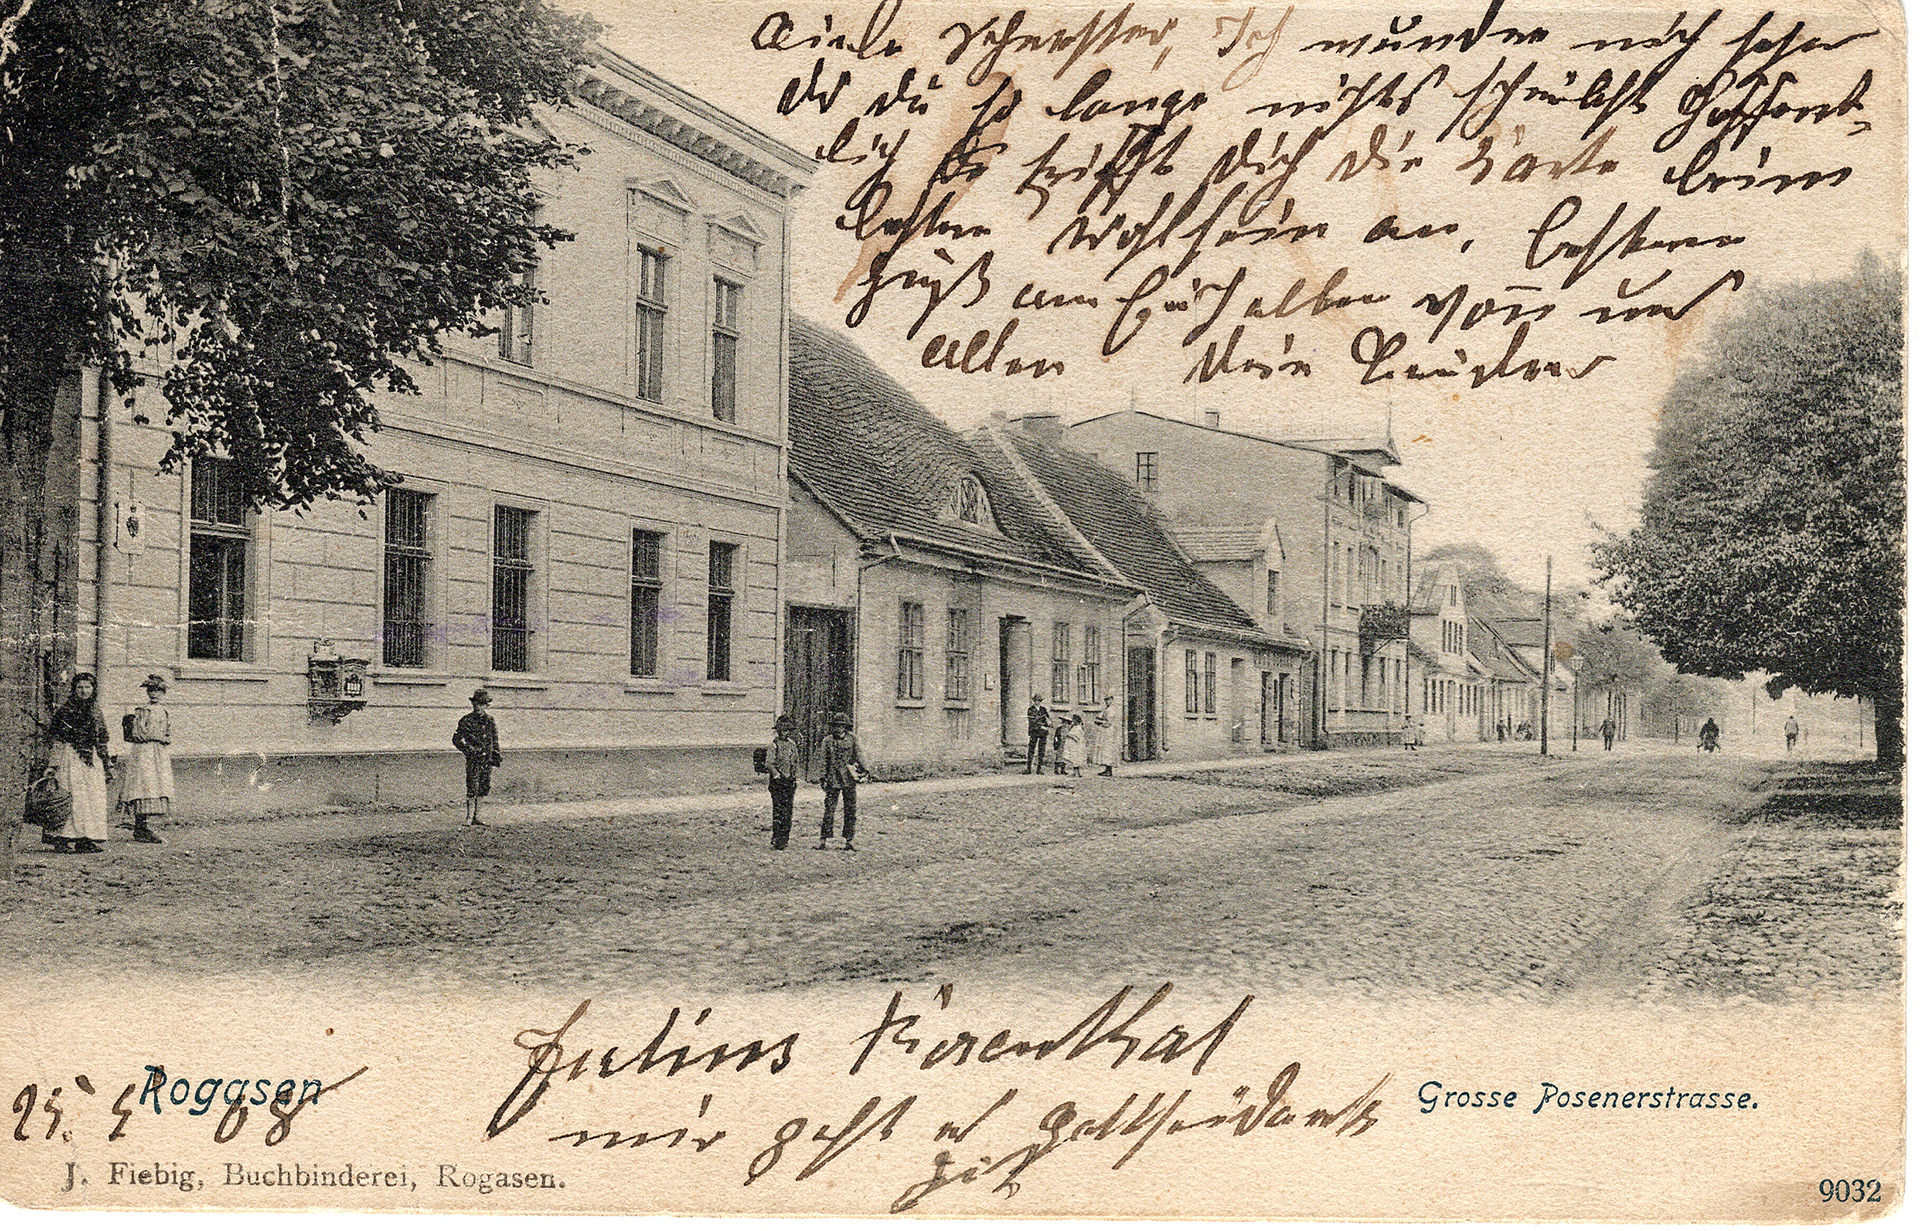 Liebe Schwester, Ich wunder mich sehr
das du so lange nichts schreibst Hoffent-
lich trifft dich die Karte beim
besten Wohlsein an, besten
Gruß an Euch allen von uns
allen Dein Bruder
Julius Rosenthal
mir geht es Gottseidank
gut
25. 5 08
Rogasen
Grosse Posenerstrasse.
J. Fiebig, Buchbinderei, Rogasen.
9032